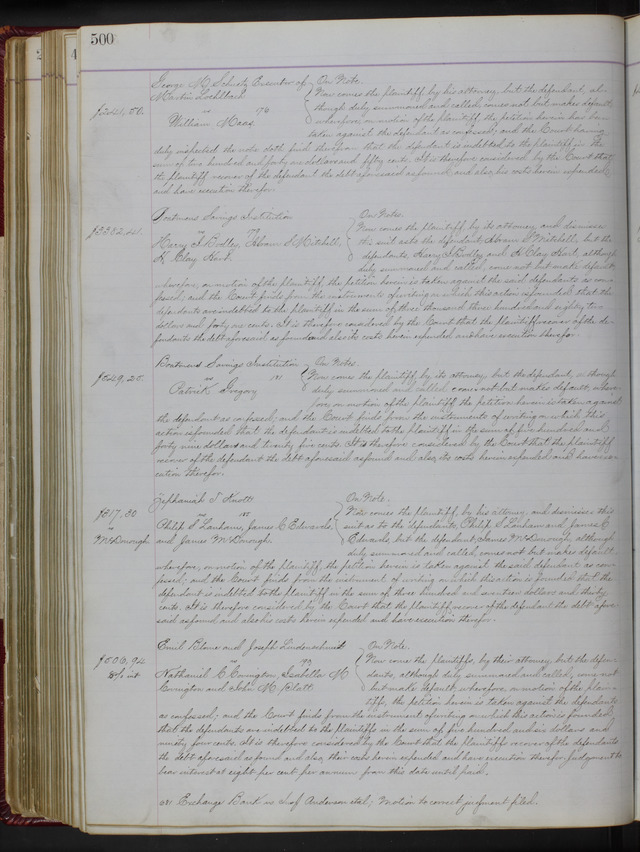 500
George M. Schuetz Executor of
Martin
$241.50.
vs 176
William Maas
On Note.
Now comes the plaintiff by his attorney, but the defendant, al-
though duly summoned and called, comes not but makes default;
wherefore, on motion of the plaintiff, the petition herein
taken against the defendant as confessed; and the Court having
duly inspected the note doth find therefrom that the defendant is indebted to the plaintiff in the
sum of two hundred and forty one dollars and fifty cents. It is therefore considered by the Court that
the plaintiff recover of the defendant the debt aforesaid as found, and also his costs herein expended,
and have execution therefor.
Boatmens Savings Institution
$3382.41.
vs
Henry T. Bodley, Abram S. Mitchell,
H. Clay Hart.
On Notes.
Now comes the plaintiff, by its attorney, and dismisses
its suit as to the defendant Abram S Mitchell, but the
defendants Henry T Bodley and H Clay Hart, although
duly summoned and called, come not but make default;
wherefore, on motion of the plaintiff, the petition herein is taken against the said defendants as con-
fessed; and the Court finds from the instruments of writing on which this action is founded, that the
defendants are indebted to the plaintiff in the sum of three thousand three hundred and eighty two
dollars and forty one cents. It is therefore considered by the Court that the plaintiff recover of the de-
fendants the debt aforesaid as found and also its costs herein expended and have execution therefor.
Boatmens Savings Institution
$549.25.
vs 181
Patrick Gregory
On Notes.
Now comes the plaintiff, by its attorney, but the defendant, although
duly summoned and called, comes not but makes default; where-
fore, on motion of the plaintiff, the petition herein is taken against
the defendant as confessed; and the Court finds from the instruments of writing on which this
action is founded that the defendant is indebted to the plaintiff in the sum of five hundred and
forty nine dollars and twenty five cents. It is therefore considered by the Court that the plaintiff
recover of the defendant the debt aforesaid as found and also its costs herein expended and have exe-
cution therefor.
Zephaniah T Knott
$317.30
vs
McDonough
vs 185
Philip S Lanham, James C Edwards,
and James McDonough.
On Note.
Now comes the plaintiff, by his attorney, and dismisses this
suit as to the defendants, Philip S Lanham and James C
Edwards, but the defendant, James McDonough, although
duly summoned and called, comes not but makes default;
wherefore, on motion of the plaintiff, the petition herein is taken against the said defendant as con-
fessed; and the Court finds from the instrument of writing on which this action is founded that the
defendant is indebted to the plaintiff in the sum of three hundred and seventeen dollars and thirty
cents. It is therefore considered by the Court that the plaintiff recover of the defendant the debt afore-
said as found and also his costs herein expended and have execution therefor.
Emil Blome and Joseph Lindenschmit
$506.94
8% int
vs 193
Nathaniel C. Covington, Isabella M
Covington and John M. Platt
On Note.
Now come the plaintiffs, by their attorney, but the defen-
dants, although duly summoned and called, come not
but make default; wherefore, on motion of the plain-
tiffs, the petition herein is taken against the defendants
as confessed; and the Court finds from the instrument of writing on which this action is founded,
that the defendants are indebted to the plaintiffs in the sum of five hundred and six dollars and
ninety four cents. It is therefore considered by the Court that the plaintiffs recover of the defendants
the debt aforesaid as found and also their costs herein expended and have execution therefor. Judgment to
bear interest at eight per cent per annum from this date until paid.
Exchange Bank vs Anderson et al; Motion to correct judgment filed.